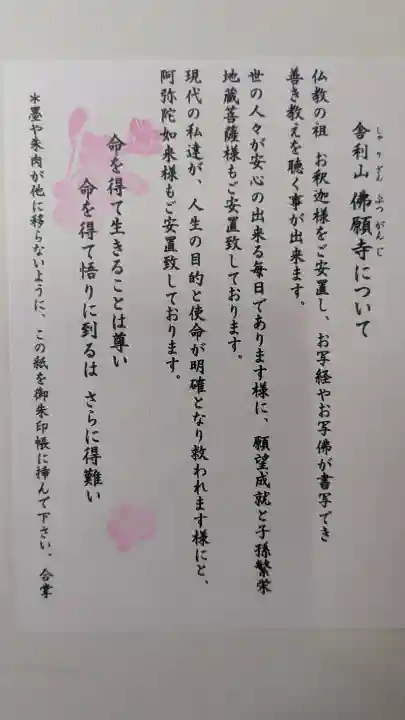 舎利山 佛願寺について
しゃ り ざん ぶつ がん じ
仏教の祖 お釈迦様をご安置し、お写経やお写佛が書写でき
善き教えを聴く事が出来ます。
世の人々が安心の出来る毎日であります様に、願望成就と子孫繁栄
地蔵菩薩様もご安置致しております。
現代の私達が、人生の目的と使命が明確となり救われます様にと、
阿弥陀如来様もご安置致しております。
命を得て生きることは尊い
命を得て悟りに到るは さらに得難い
*墨や朱肉が他に移らないように、この紙を御朱印帳に挿んで下さい。 合掌